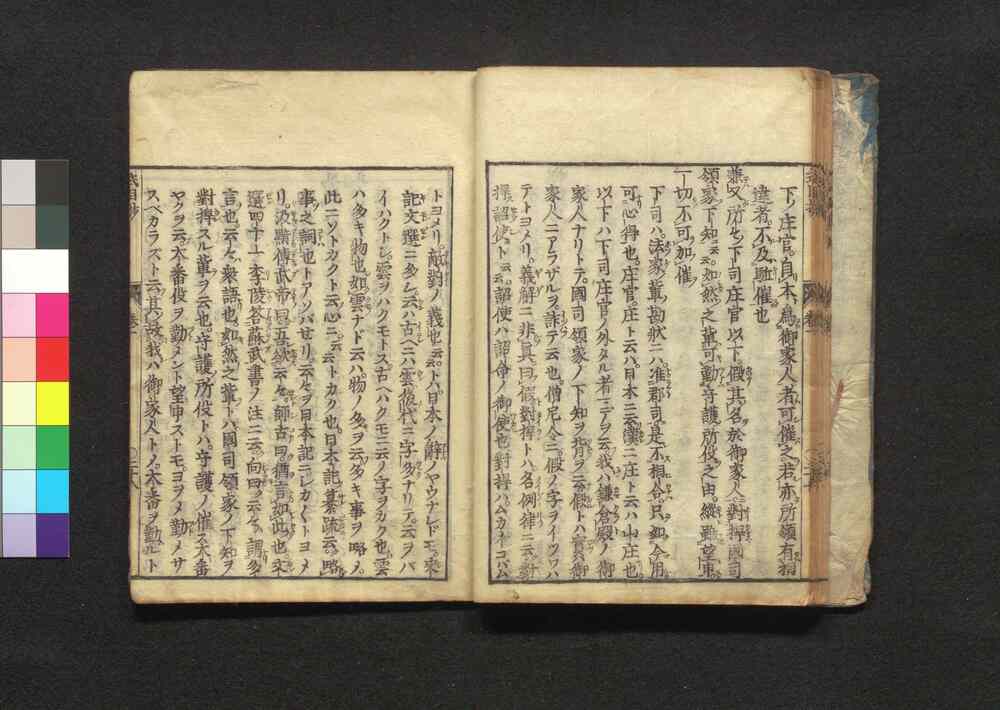 下ノ庄官。自本為御家人者可催之若亦所領有相
違者不及催也
兼又所々下司庄官以下假其名於御家人對捍國司
領家下知云云如然之輩可勤守護所役之由縦雖望申
一切不可加催
下司ハ法家ノ輩勘状ニハ准郡司是不相合只如今用
可心得也。庄官。庄ト云ハ日本ニ云漢ニ庄ト云ハ小庄也
以下ハ下司庄官ノ外タル者ニテヲ云我ハ鎌倉殿ノ御
家人ナリトテ。國司領家ノ下知ヲ背ヲ云假トハ實御
家人ニアラザルヲ詐テ云也。僧尼令ニ假ノ字ヲイツハ
テトヨメリ。義解ニ非真曰假對捍トハ名例律ニ云對
捍詔使ト云云。詔使ハ詔命ノ御使也對捍ハムカイコバム
トヨメリ。敵對ノ義也云云。トハ日本ノ辭ノヤウナレドモ。史
記文選ニ多シ云ハ古ヘニハ雲後代ニ字多ナリテ。云ヲバ
イハクトシ。雲ヲハクモトス古ヘハクモニ云ノ字ヲカク也雲
ハ多キ物也如雲ナドト云ハ物ノ多ヲ云多キ事ヲ略メ。
此ニソトカクト云心ニ云云トカク也。日本記纂疏云。略
事之詞也トアソバせリ云々ヲ日本記ニシカ〱トヨメ
リ。汲黯傳武帝曰吾欲云々。師古曰猶言如此也文
選四十一李陵答蘇武書ノ注ニ云。向曰云々。謂多
言也云々。衆語也。如然之輩トハ國司領家ノ下知ヲ
對捍スル輩ヲ云也。守護所役トハ。守護ノ催ス大番
ヤクヲ云大番役ヲ勤メント望申ストモ。ヨヲメ勤メサ
スベカラズト云。其故我ハ御家人トメ。大番ヲ勤ルト